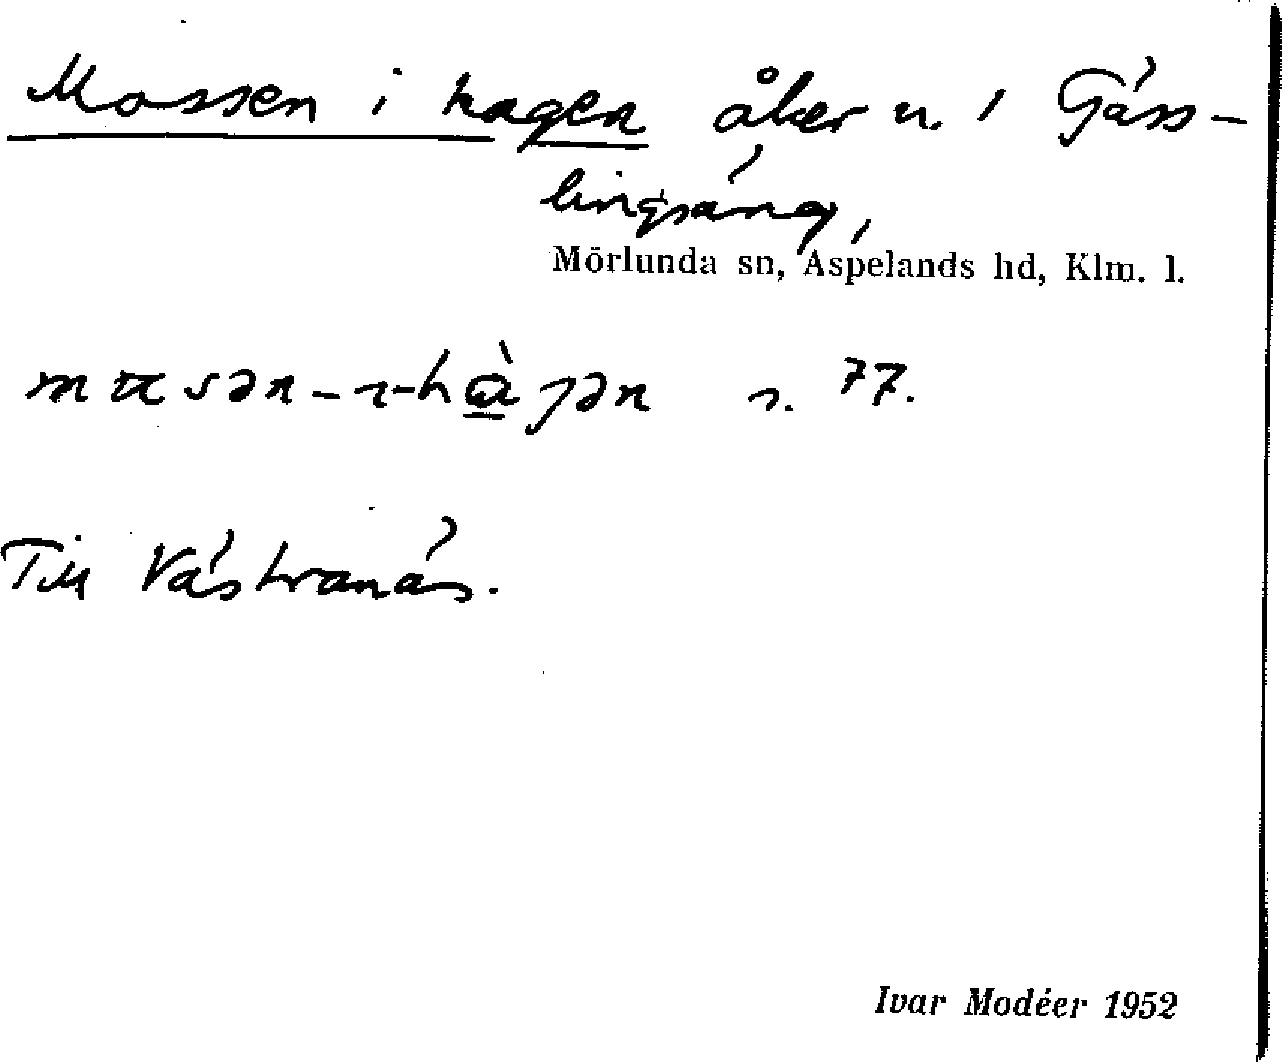 Mossen i hagen åker n. i Gäss-
lingsäng,
Mörlunda sn, Aspelands hd, Klm. l.
s. 77.
Till Västranäs.
Ivar Modéer 1952